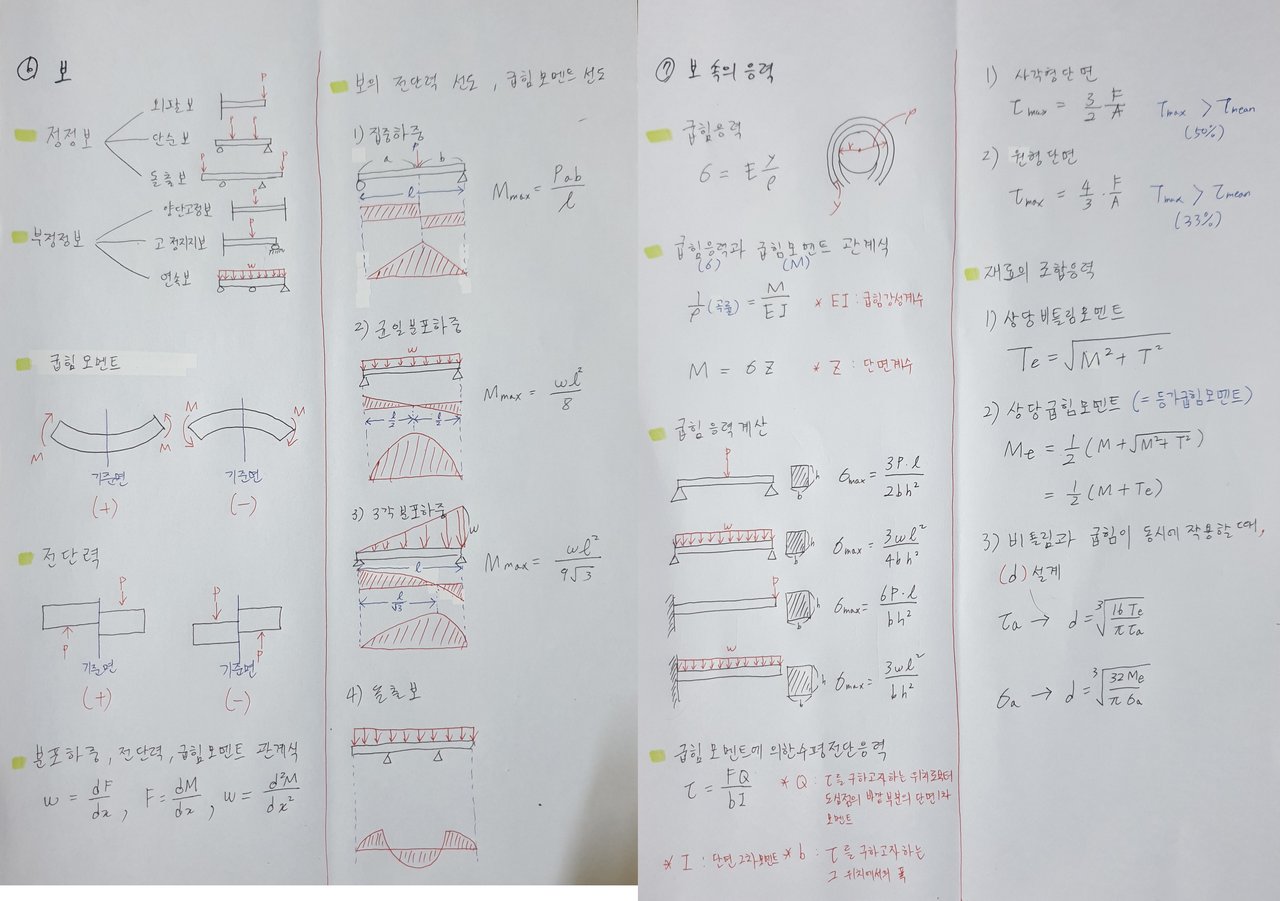 ⑥ 보
정정보
외팔보
P
단순보
P P
돌출보
P P
부정정보
양단고정보
P
고정지지보
P
연속보
w
굽힘 모멘트
M M M M
기준면 기준면
(+) (-)
전단력
P P
P P
기준면 기준면
(+) (-)
분포하중, 전단력, 굽힘모멘트 관계식
w = dF/dx, F = dM/dx, w = d²M/dx²
보의 전단력 선도, 굽힘모멘트 선도
1) 집중하중
P
a b
l
Mmax = Pab/l
2) 균일분포하중
w
l/2 l/2
Mmax = wl²/8
3) 3각분포하중
w
l
l/√3
Mmax = wl²/9√3
4) 돌출보
⑦ 보 속의 응력
굽힘응력
σ = E y/ρ
ρ
y
굽힘응력과 굽힘모멘트 관계식
(σ) (M)
1/ρ (곡률) = M/EI * EI : 굽힘강성계수
M = σZ * Z : 단면계수
굽힘응력계산
P
h
b
σmax = 3P·l/2bh²
w
h
b
σmax = 3wl²/4bh²
P
h
b
σmax = 6P·l/bh²
w
h
b
σmax = 3wl²/bh²
굽힘 모멘트에 의한 수평전단응력
τ = FQ/bI
* Q : τ를 구하고자하는 위치로부터
도심점의 바깥부분의 단면1차
모멘트
* I : 단면 2차모멘트 * b : τ를 구하고자하는
그 위치에서의 폭
1) 사각형단면
τmax = 3/2 · F/A τmax > τmean
(50%)
2) 원형단면
τmax = 4/3 · F/A τmax > τmean
(33%)
재료의 조합응력
1) 상당비틀림모멘트
Te = √(M² + T²)
2) 상당굽힘모멘트 (= 등가굽힘모멘트)
Me = 1/2 (M + √(M² + T²))
= 1/2 (M + Te)
3) 비틀림과 굽힘이 동시에 작용할 때,
(d) 설계
τa → d = ³√(16Te/πτa)
σa → d = ³√(32Me/πσa)